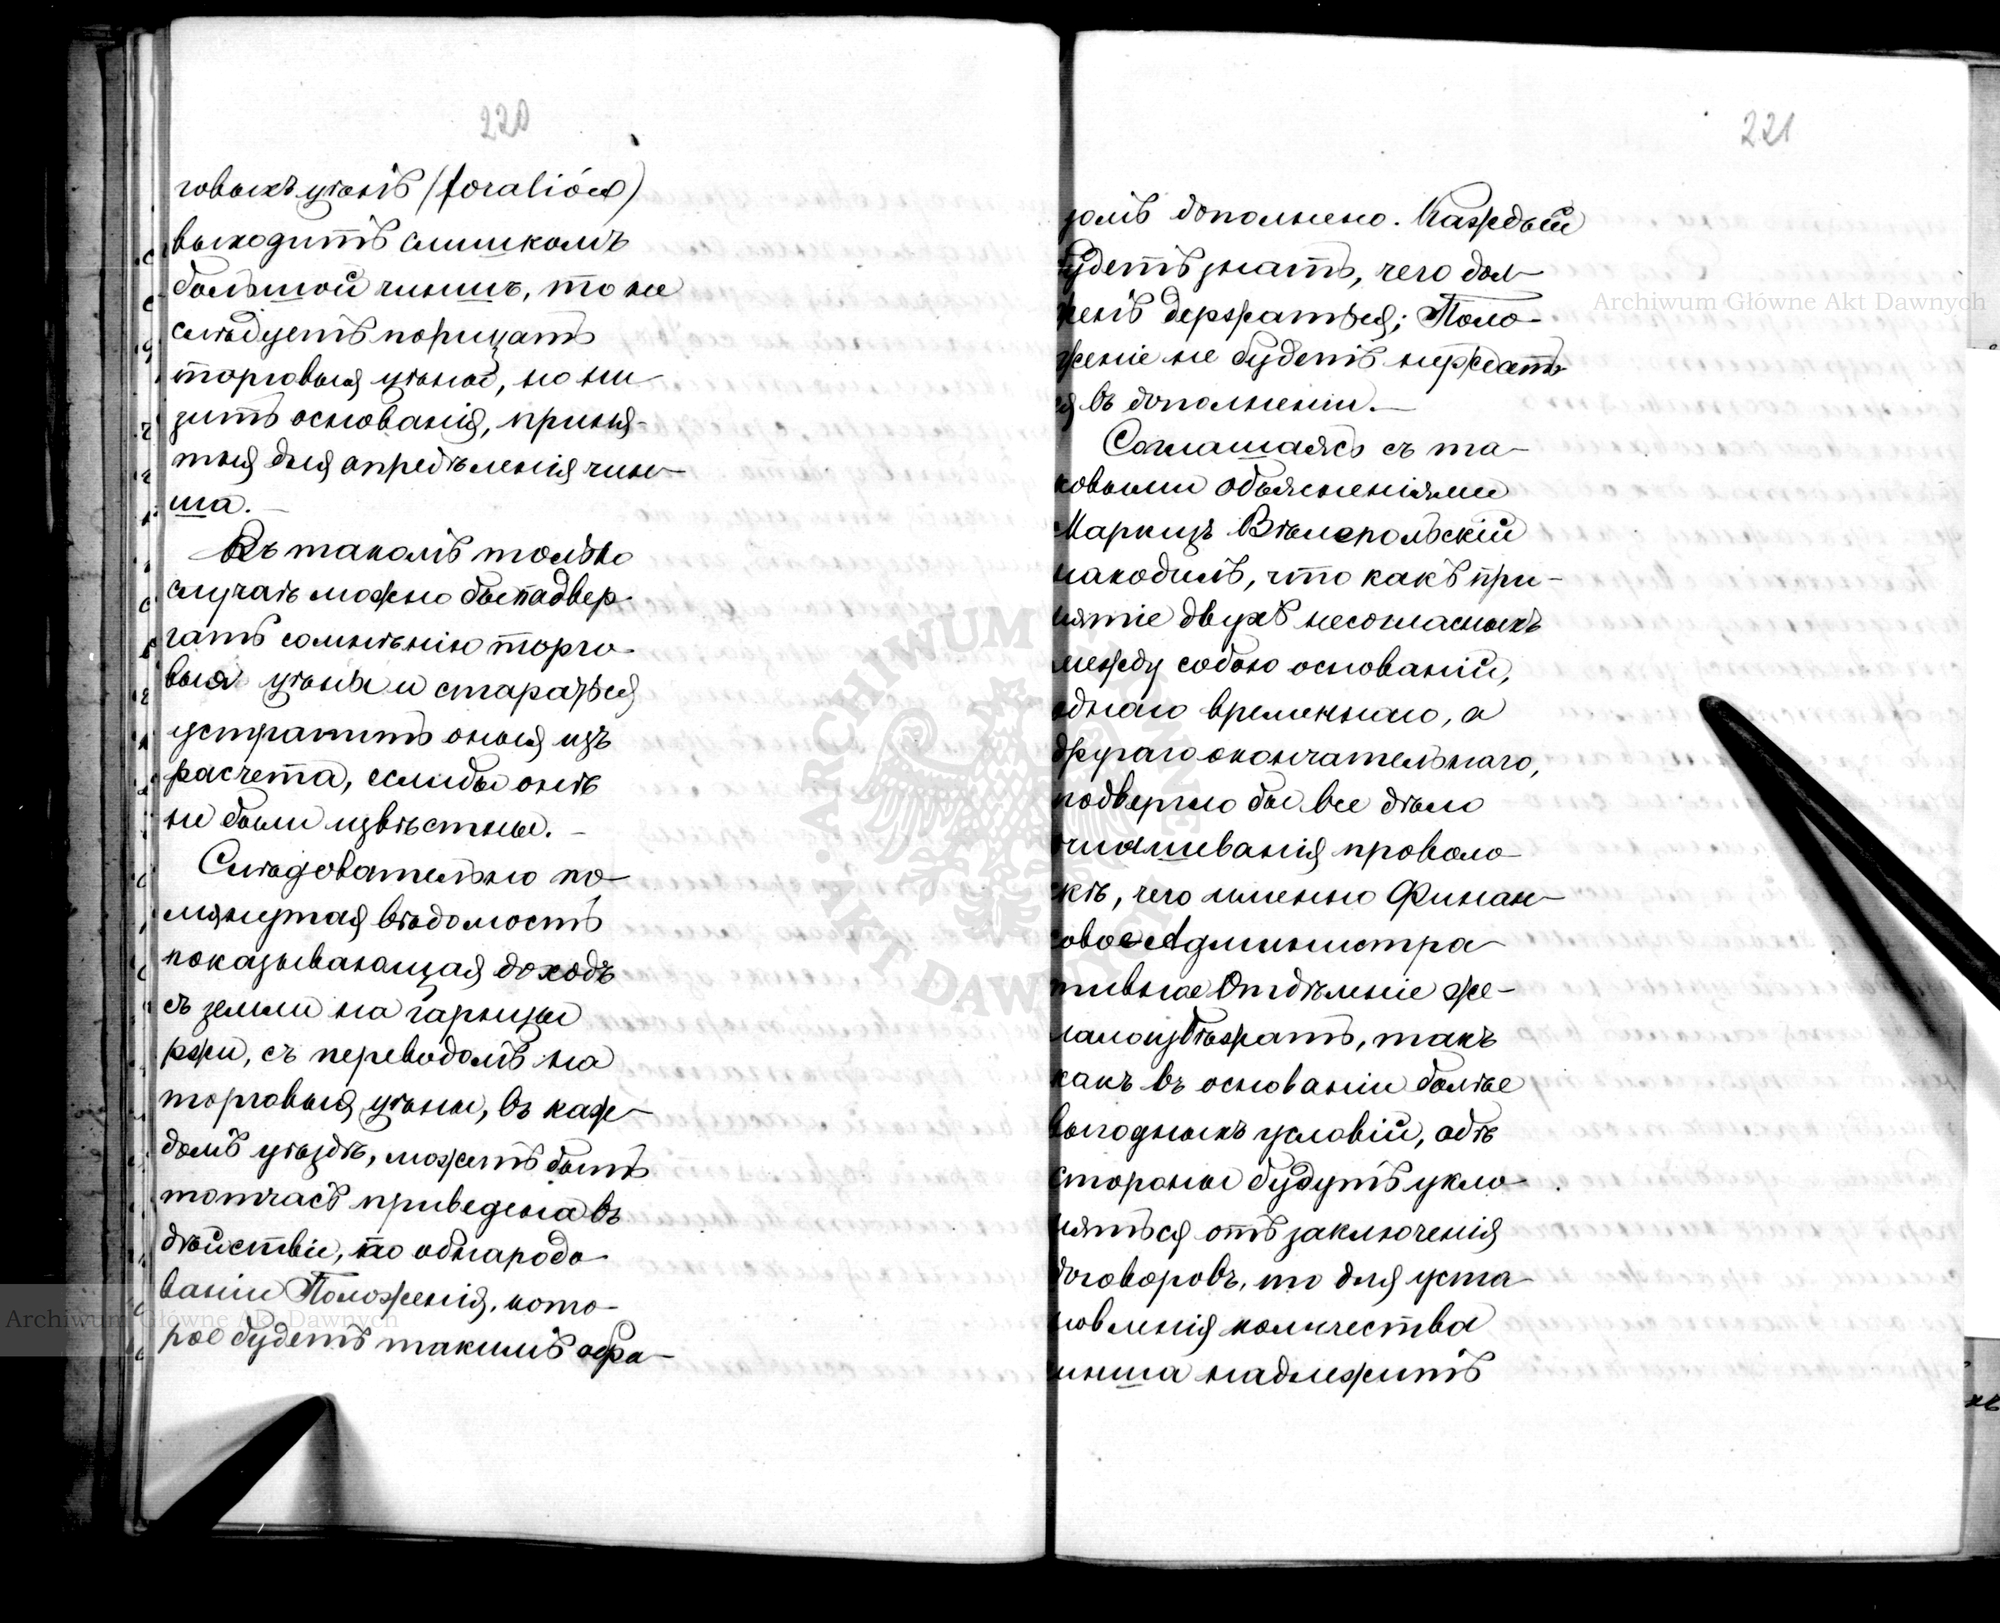 220
говыхъ цѣнъ (foraliów)
выходитъ слишкомъ
большой чиншъ, то не
слѣдуетъ порицать
торговыя цѣны, но ни-
зить основанія, приня-
тыя для опредѣленія чин-
ша. —
Въ такомъ только
случаѣ можно бы подвер-
гать сомнѣнію торго-
выя цѣны и стараться
устранить оныя изъ
расчета, еслибы онѣ
не были извѣстны. —
Слѣдовательно по-
мянутая вѣдомость
показывающая доходъ
съ земли на гарнцы
ржи, съ переводомъ на
торговыя цѣны, въ каж-
домъ уѣздѣ, можетъ быть
тотчасъ приведена въ
дѣйствіе, по обнародо-
ваніи Положенія, кото-
рое будетъ такимъ обра-
221
зомъ дополнено. Каждый
будетъ знать, чего дол-
женъ держаться; Поло-
женіе не будетъ нуждать-
ся въ дополненіи. —
Соглашаясь съ та-
ковыми объясненіями
Маркизъ Вѣлепольскій
находилъ, что какъ при-
нятіе двухъ несогласныхъ
между собою основаній,
однаго временнаго, а
другаго окончательнаго,
подвергло бы все дѣло
очиншиванія проволо-
чкѣ, чего именно Финан-
совое Администра-
тивное Отдѣленіе же-
лало избѣжать, такъ
какъ въ основаніи болѣе
выгодныхъ условій, обѣ
стороны будутъ укло-
няться отъ заключенія
договоровъ, то для уста-
новленія количества
чинша надлежитъ
Archiwum Główne Akt Dawnych
Archiwum Główne Akt Dawnych
ARCHIWUM GŁÓWNE AKT DAWNYCH